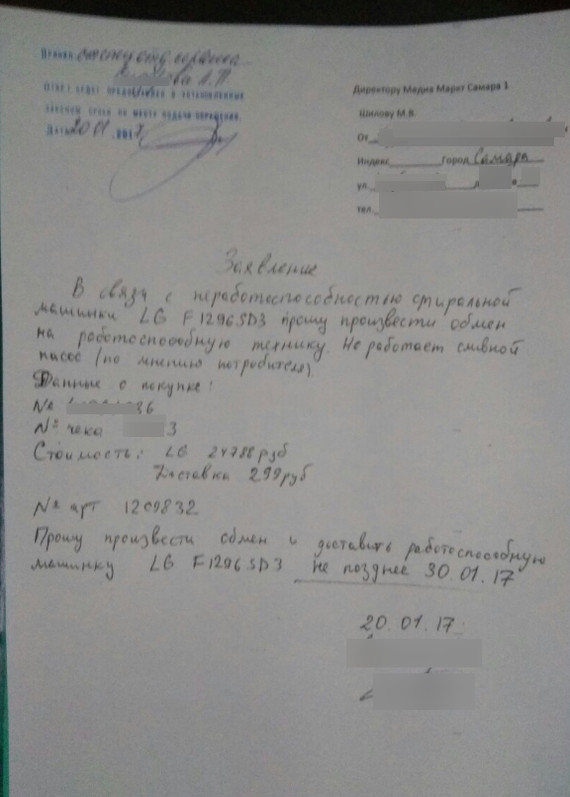 Принял
ОТВЕТ БУДЕТ ПРЕДОСТАВЛЕН В УСТАНОВЛЕННЫЕ
ЗАКОНОМ СРОКИ ПО МЕСТУ ПОДАЧИ ОБРАЩЕНИЯ.
Дата 20 01 . 2017
Директору Медиа Маркт Самара 1
Шилову М.В.
От
Индекс Город Самара
ул.
тел.
Заявление
В связи с неработоспособностью стиральной
машинки LG F1296SD3 прошу произвести обмен
на работоспособную технику. Не работает сливной
насос (по мнению потребителя)
Данные о покупке:
№ 36
№ чека 3
Стоимость: LG 24788 руб
Доставка 299 руб
№ арт 1209832
Прошу произвести обмен и доставить работоспособную
машинку LG F1296SD3 не позднее 30.01.17
20.01.17